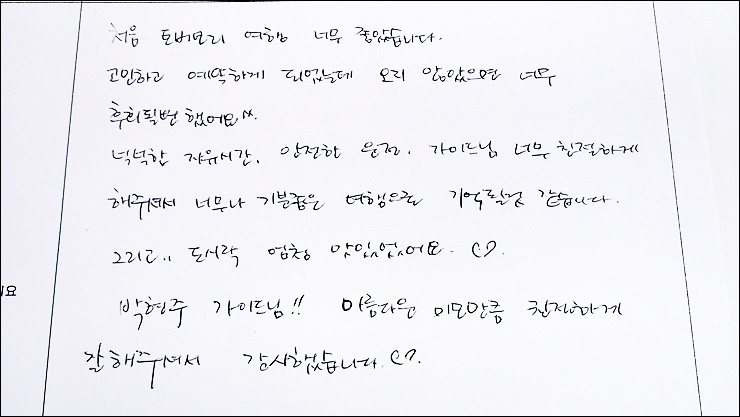 처음 토버모리 여행 너무 좋았습니다.
고민하고 예약하게 되었는데 오리 않았으면 너무
후회될번 했어요^^.
넉넉한 자유시간, 안전한 운전, 가이드님 너무 친절하게
해주셔서 너무나 기분좋은 여행으로 기억될것 같습니다.
그리고.. 도시락 엄청 맛있었어요. ♡.
박현주 가이드님!! 아름다운 미모만큼 친절하게
잘해주셔서 감사했습니다. ♡.
요